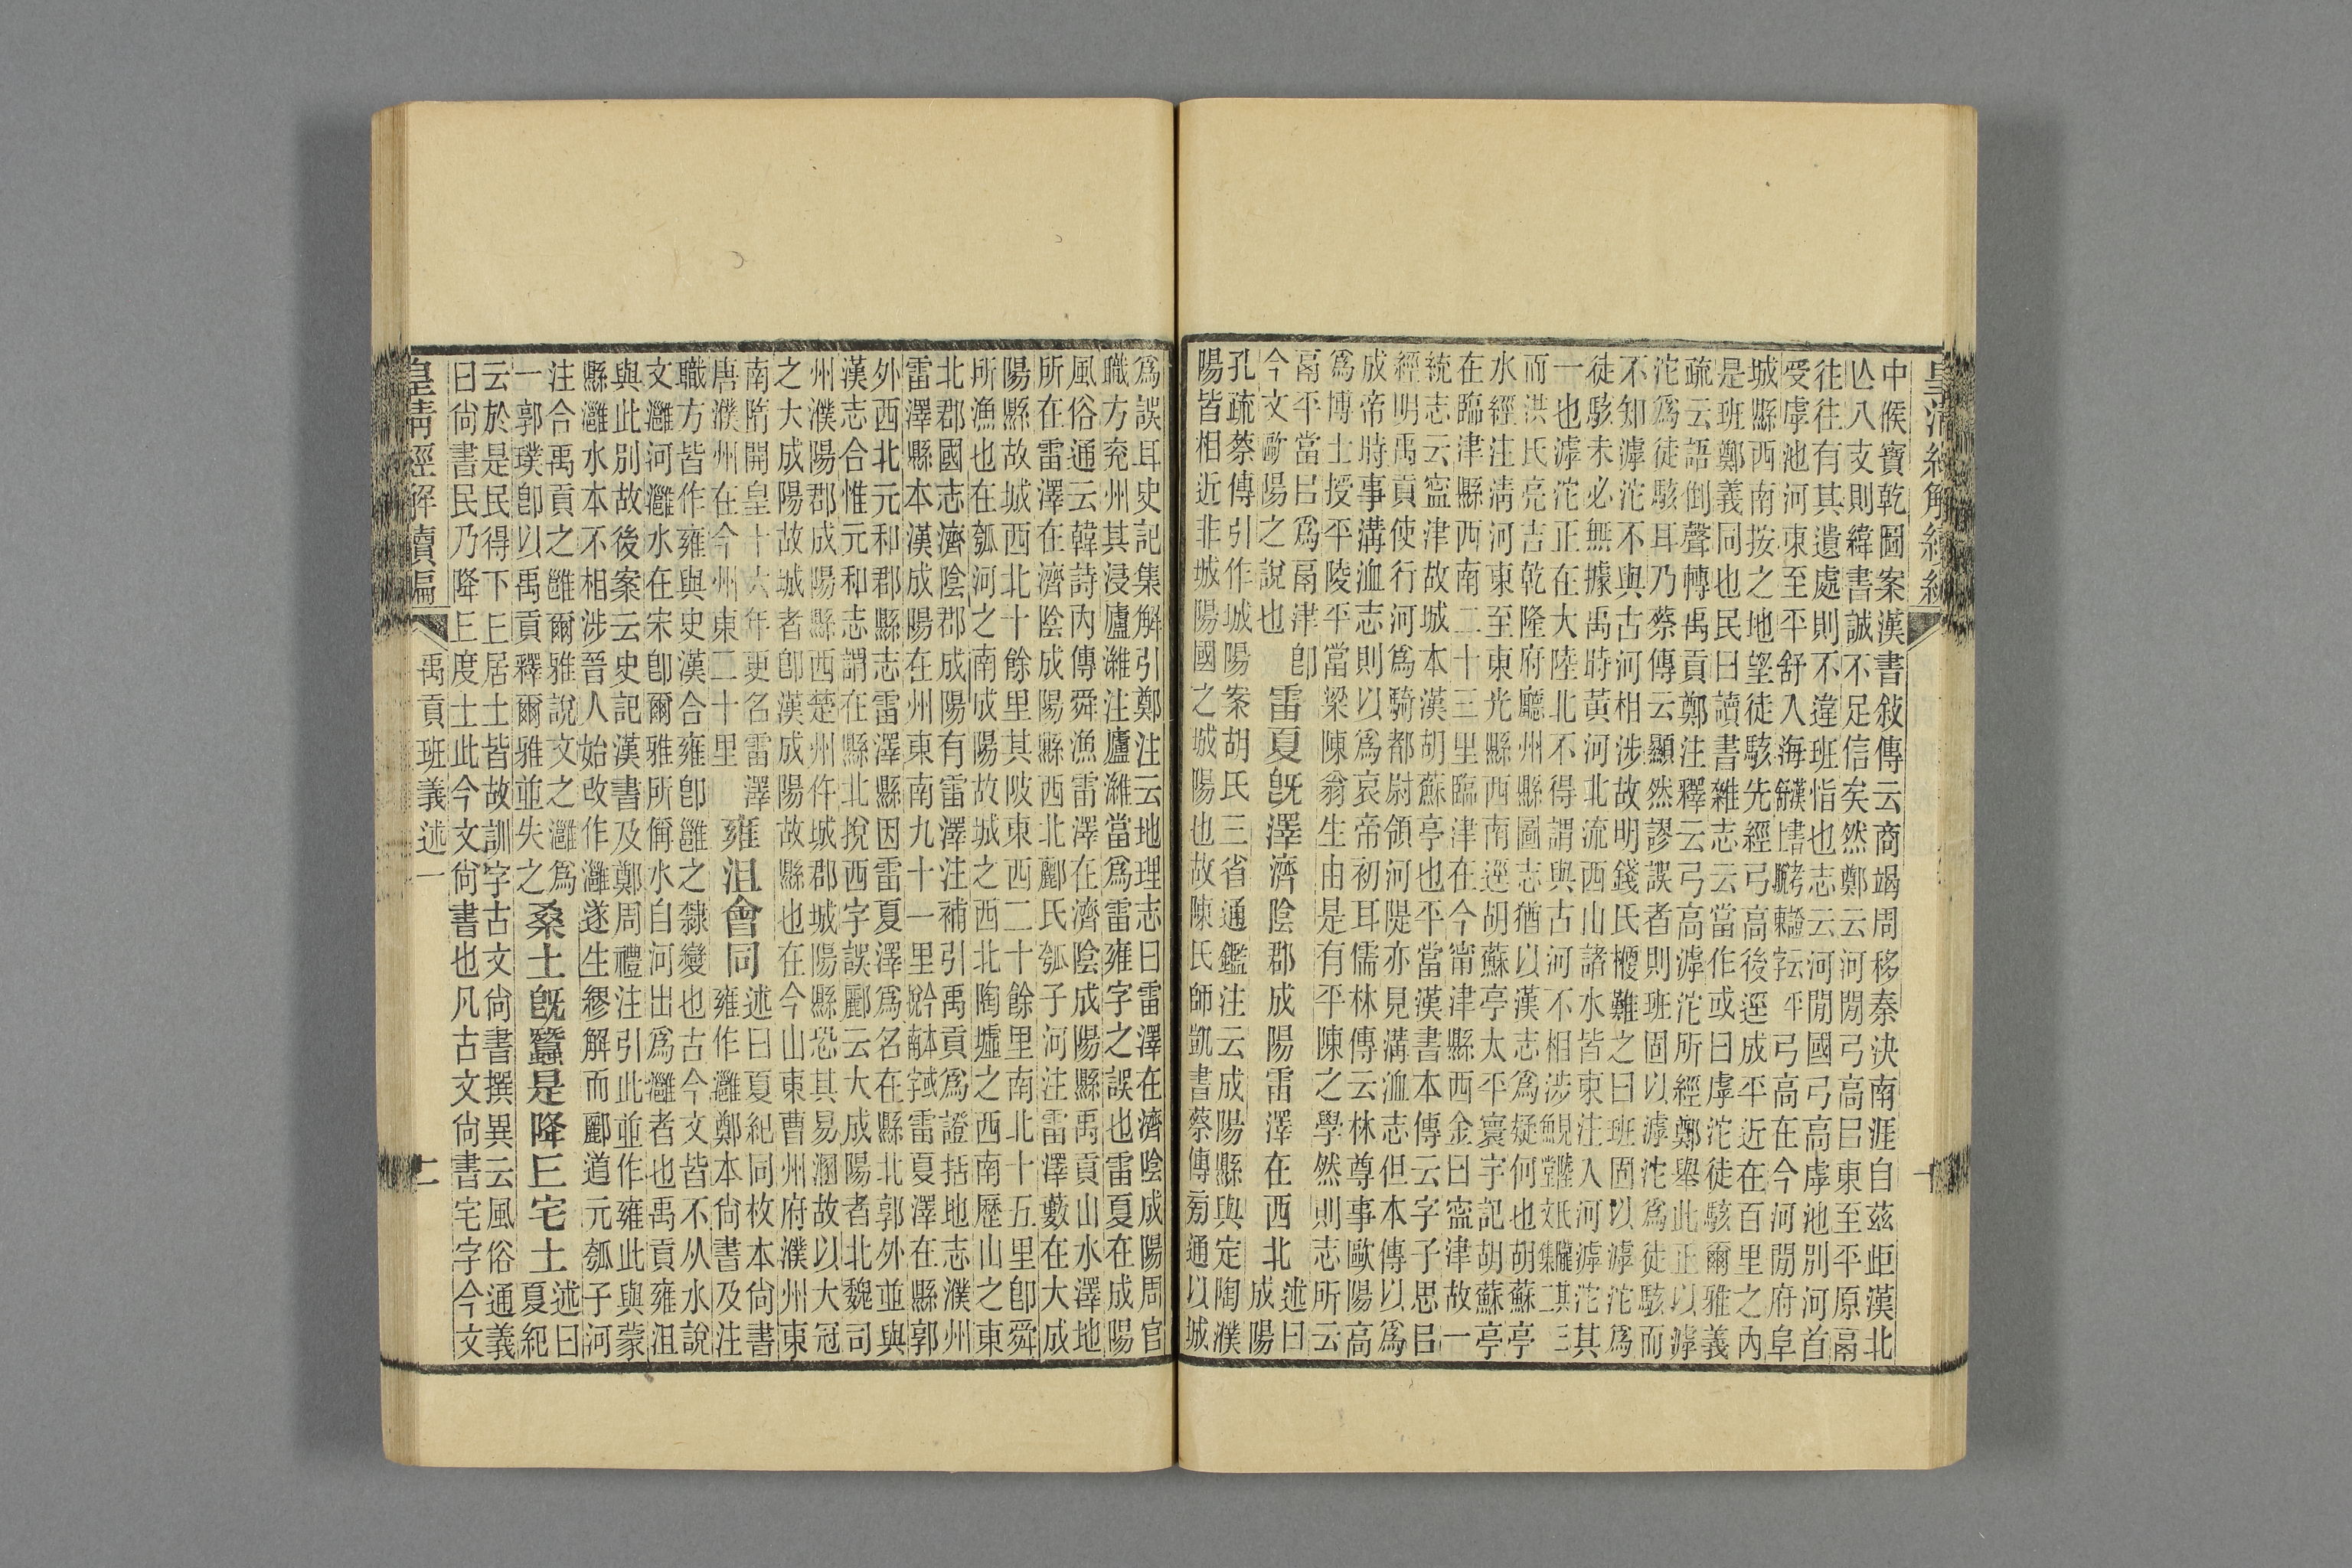 中候寶乾圖案漢書敍傳云商竭周移秦決南涯自茲岠漢北
亾八支則緯書誠不足信矣然鄭云河閒弓高㠯東至平原鬲
往往有其遺處則不違班恉也志云河閒國弓高虖池別河首
受虖池河東至平舒入海弓高在今河閒府阜
城縣西南按之地望徒駭先經弓高後逕成平近在百里之內
是班鄭義同也民曰讀書雜志云當作或曰虖沱徒駭爾雅義
疏云語倒聲轉禹貢鄭注釋云弓高滹沱所經鄭舉此正以滹
沱爲徒駭耳乃蔡傳云顯然謬誤者則班固以滹沱爲徒駭而
不知滹沱不與古河相涉故明錢氏難之曰班固以滹沱爲
徒駭未必無據禹時黃河北流西山諸水皆東注入河滹沱其
一也滹沱正在大陸北不得謂與古河不相涉
而洪氏亮吉乾隆府廳州縣圖志猶以漢志爲疑何也胡蘇亭
水經注淸河東至東光縣西南逕胡蘇亭太平寰宇記胡蘇亭
在臨津縣西南二十三里臨津在今甯津縣西金曰寍津故一
統志云寍津故城本漢胡蘇亭也平當漢書本傳云字子思㠯
經明禹貢使行河爲騎都尉領河隄亦見溝洫志但本傳以爲
成帝時事溝洫志則以爲哀帝初耳儒林傳云林尊事歐陽高
爲博士授平陵平當梁陳翁生由是有平陳之學然則志所云
鬲平當㠯爲鬲津卽
今文歐陽之說也
雷夏旣澤濟陰郡成陽雷澤在西北
述曰
成陽
孔疏蔡傳引作城陽案胡氏三省通鑑注云成陽縣與定陶濮
陽皆相近非城陽國之城陽也故陳氏師凱書蔡傳㫄通以城
爲誤耳史記集解引鄭注云地理志曰雷澤在濟陰成陽周官
職方兗州其浸廬濰注廬濰當爲雷雍字之誤也雷夏在成陽
風俗通云韓詩內傳舜漁雷澤在濟陰成陽縣禹貢山水澤地
所在雷澤在濟陰成陽縣西北酈氏瓠子河注雷澤藪在大成
陽縣故城西北十餘里其陂東西二十餘里南北十五里卽舜
所漁也在瓠河之南成陽故城之西北陶墟之西南歷山之東
北郡國志濟陰郡成陽有雷澤注補引禹貢爲證括地志濮州
雷澤縣本漢成陽在州東南九十一里雷夏澤在縣郭
外西北元和郡縣志雷澤縣因雷夏澤爲名在縣北郭外並與
漢志合惟元和志謂在縣北挩西字誤酈云大成陽者北魏司
州濮陽郡成陽縣西楚州仵城郡城陽縣恐其易溷故以大冠
之大成陽故城者卽漢成陽故縣也在今山東曹州府濮州東
南隋開皇十六年更名雷澤
唐濮州在今州東二十里
雍沮會同
述曰夏紀同枚本尙書
雍作灉鄭本尙書及注
職方皆作雍與史漢合雍卽邕之隸變也古今文皆不从水說
文灉河灉水在宋卽爾雅所偁水自河出爲灉者也禹貢雍沮
與此別故後案云史記漢書及鄭周禮注引此並作雍此與蒙
縣灉水本不相涉晉人始改作灉遂生繆解而酈道元瓠子河
注合禹貢之雝爾雅說文之灉爲
一郭璞卽以禹貢釋爾雅並失之
桑土旣蠶是降丠宅土
述曰
夏紀
云於是民得下丠居土皆故訓字古文尙書撰異云風俗通義
曰尙書民乃降丠度土此今文尙書也凡古文尙書宅字今文
皇淸經解續編
禹貢班義述一